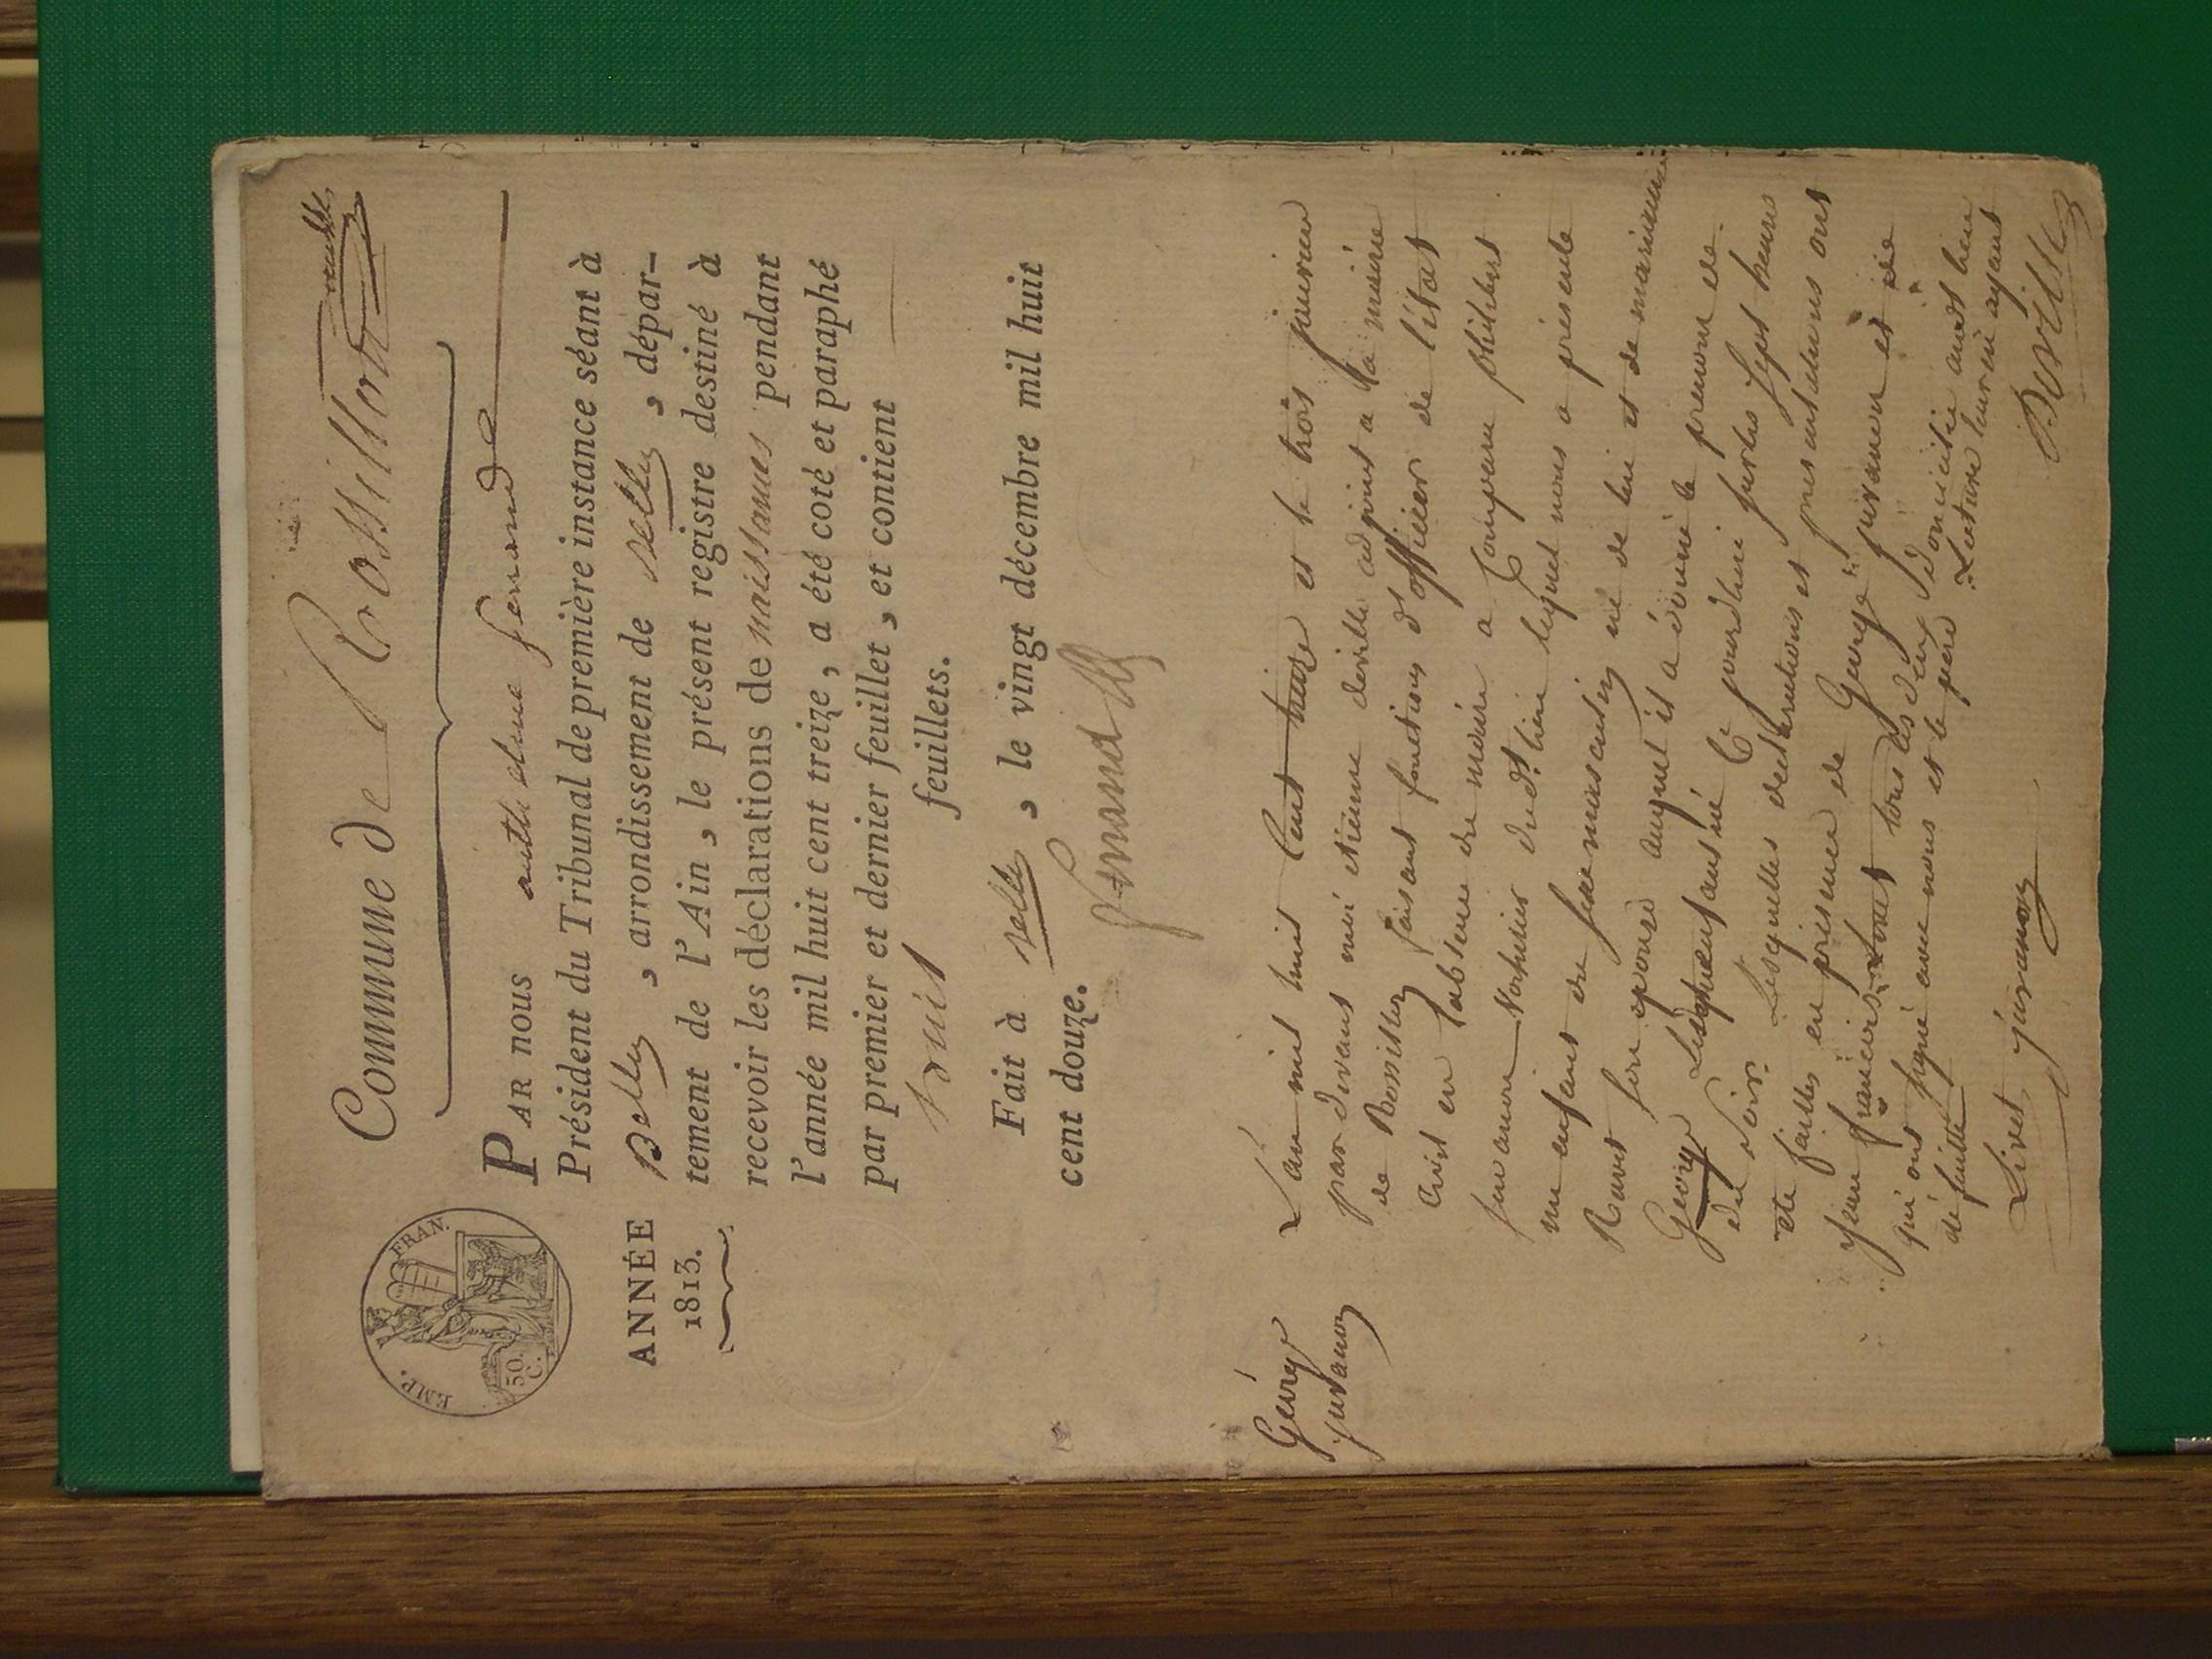 Commune de Rossillon
EMP. FRAN.
50. C.
ANNÉE
1813.
PAR nous anthelme ferrand
Président du Tribunal de première instance séant à
Belley, arrondissement de Belley, dépar-
tement de l'Ain, le présent registre destiné à
recevoir les déclarations de naissances pendant
l'année mil huit cent treize, a été coté et paraphé
par premier et dernier feuillet, et contient
huit feuillets.
Fait à Belley, le vingt décembre mil huit
cent douze.
Géorge
juvanon
L'an mil huit Cent treize et le trois janvier
par devant moi etienne derville adjoint a la mairie
de Rossillon faisant fonctions d'officier de l'état
Civil en l'absence du maire a Comparu philibert
juvanon dud. lieu lequel nous a présenté
un enfant du sexe masculin né de lui et de
son epouse auquel il a donné le prenom de
George Lequel enfant est né Cejourdhui sur les Sept heures
du soir. Lesquelles declarations et presentations ont
ete faites en présence de George juvanon et de
jean francois Livet tous les deux domicilié aud. lieu
qui ont signé avec nous et le père Lecture leur en ayant
été faitte
Livet juvanon Derville